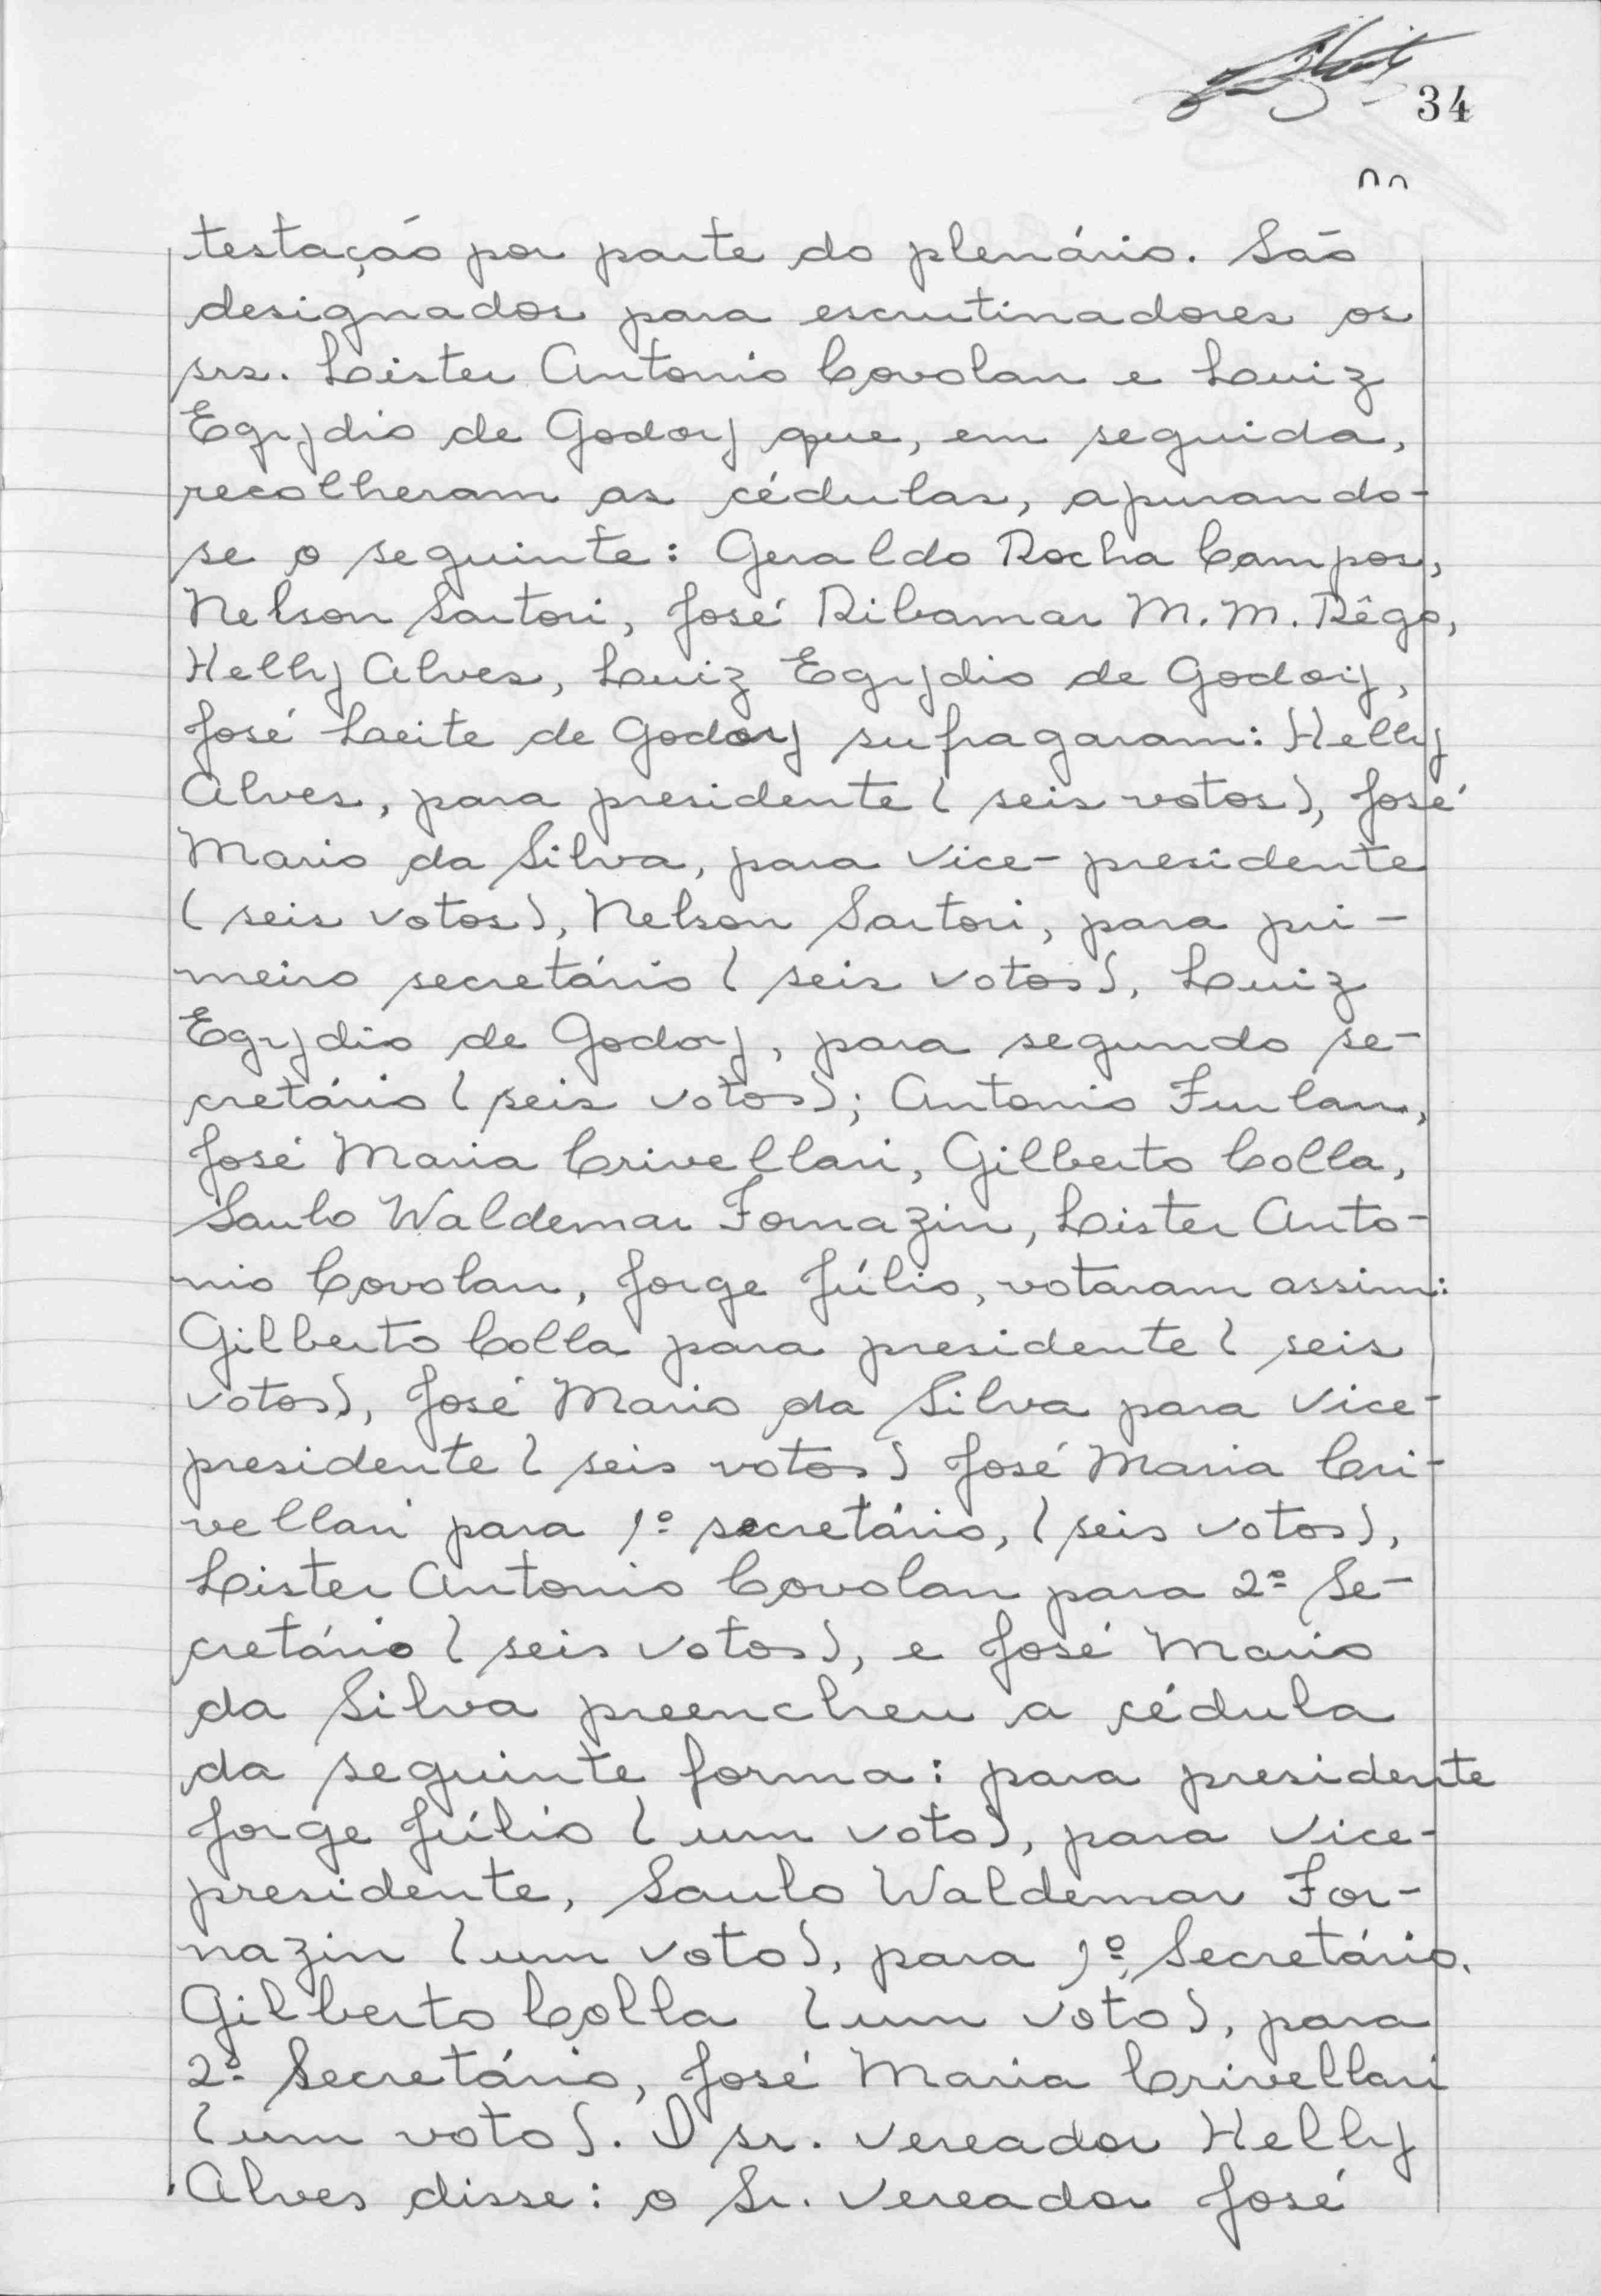 34
testação por parte do plenário. São
designados para escrutinadores os
srs. Lister Antonio Covolan e Luiz
Egydio de Godoy que, em seguida,
recolheram as cédulas, apurando-
se o seguinte: Geraldo Rocha Campos,
Nelson Sartori, José Ribamar M. M. Rêgo,
Helly Alves, Luiz Egydio de Godoy,
José Leite de Godoy sufragaram: Helly
Alves, para presidente (seis votos), José
Mario da Silva, para vice-presidente
(seis votos), Nelson Sartori, para pri-
meiro secretário (seis votos), Luiz
Egydio de Godoy, para segundo se-
cretário (seis votos); Antonio Furlan,
José Maria Crivellari, Gilberto Colla,
Saulo Waldemar Fornazin, Lister Anto-
nio Covolan, Jorge Júlio, votaram assim:
Gilberto Colla para presidente (seis
votos), José Mario da Silva para vice-
presidente (seis votos) José Maria Cri-
vellari para 1º secretário, (seis votos),
Lister Antonio Covolan para 2º Se-
cretário (seis votos), e José Mario
da Silva preencheu a cédula
da seguinte forma: para presidente
Jorge Júlio (um voto), para vice-
presidente, Saulo Waldemar For-
nazin (um voto), para 1º Secretário.
Gilberto Colla (um voto), para
2º Secretário, José Maria Crivellari
(um voto). O sr. vereador Helly
Alves disse: o Sr. vereador José